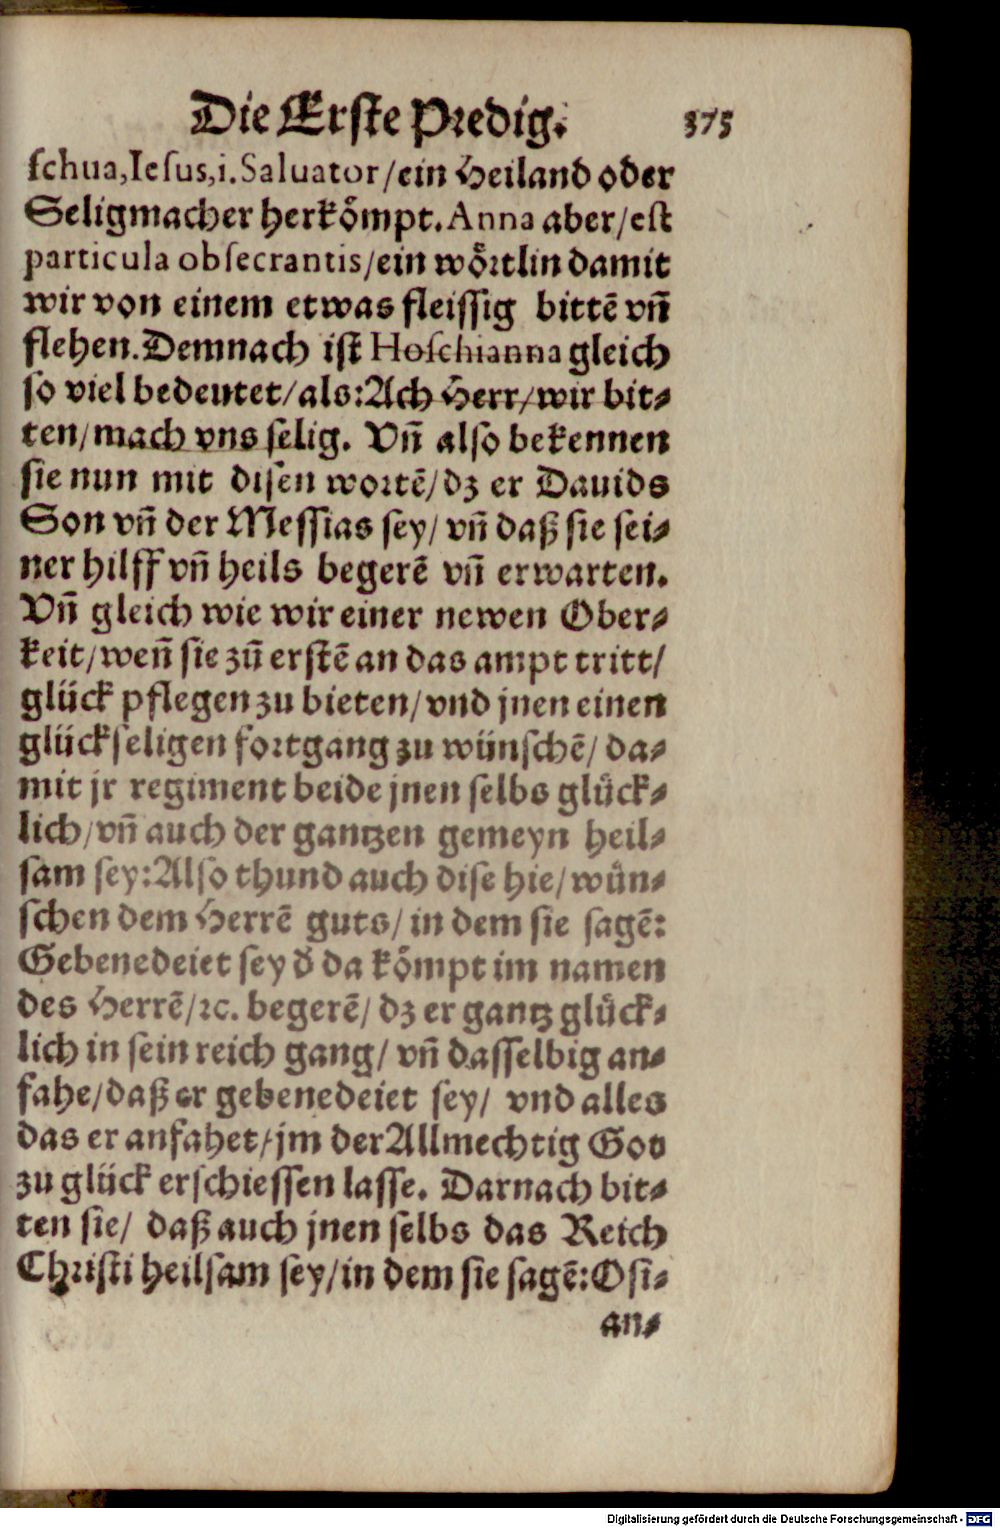 Die Erste Predig. 375
schua, Iesus, i. Saluator / ein Heiland oder
Seligmacher herkoͤmpt. Anna aber / est
particula obsecrantis / ein woͤrtlin damit
wir von einem etwas fleissig bittẽ vñ
flehen. Demnach ist Hoschianna gleich
so viel bedeutet / als: Ach Herr / wir bit⸗
ten / mach vns selig. Vñ also bekennen
sie nun mit disen wortẽ / dz er Dauids
Son vñ der Messias sey / vñ daß sie sei⸗
ner hilff vñ heils begerẽ vñ erwarten.
Vñ gleich wie wir einer newen Ober⸗
keit / weñ sie zũ erstẽ an das ampt tritt /
gluͤck pflegen zu bieten / vnd jnen einen
gluͤckseligen fortgang zu wuͤnschẽ / da⸗
mit jr regiment beide jnen selbs gluͤck⸗
lich / vñ auch der gantzen gemeyn heil⸗
sam sey: Also thund auch dise hie / wuͤn⸗
schen dem Herrẽ guts / in dem sie sagẽ:
Gebenedeiet sey d̕ da koͤmpt im namen
des Herrẽ / ꝛc. begerẽ / dz er gantz gluͤck⸗
lich in sein reich gang / vñ dasselbig an⸗
fahe / daß er gebenedeiet sey / vnd alles
das er anfahet / jm der Allmechtig Got
zu gluͤck erschiessen lasse. Darnach bit⸗
ten sie / daß auch jnen selbs das Reich
Christi heilsam sey / in dem sie sagẽ: Osi⸗
an⸗
Digitalisierung gefördert durch die Deutsche Forschungsgemeinschaft - DFG